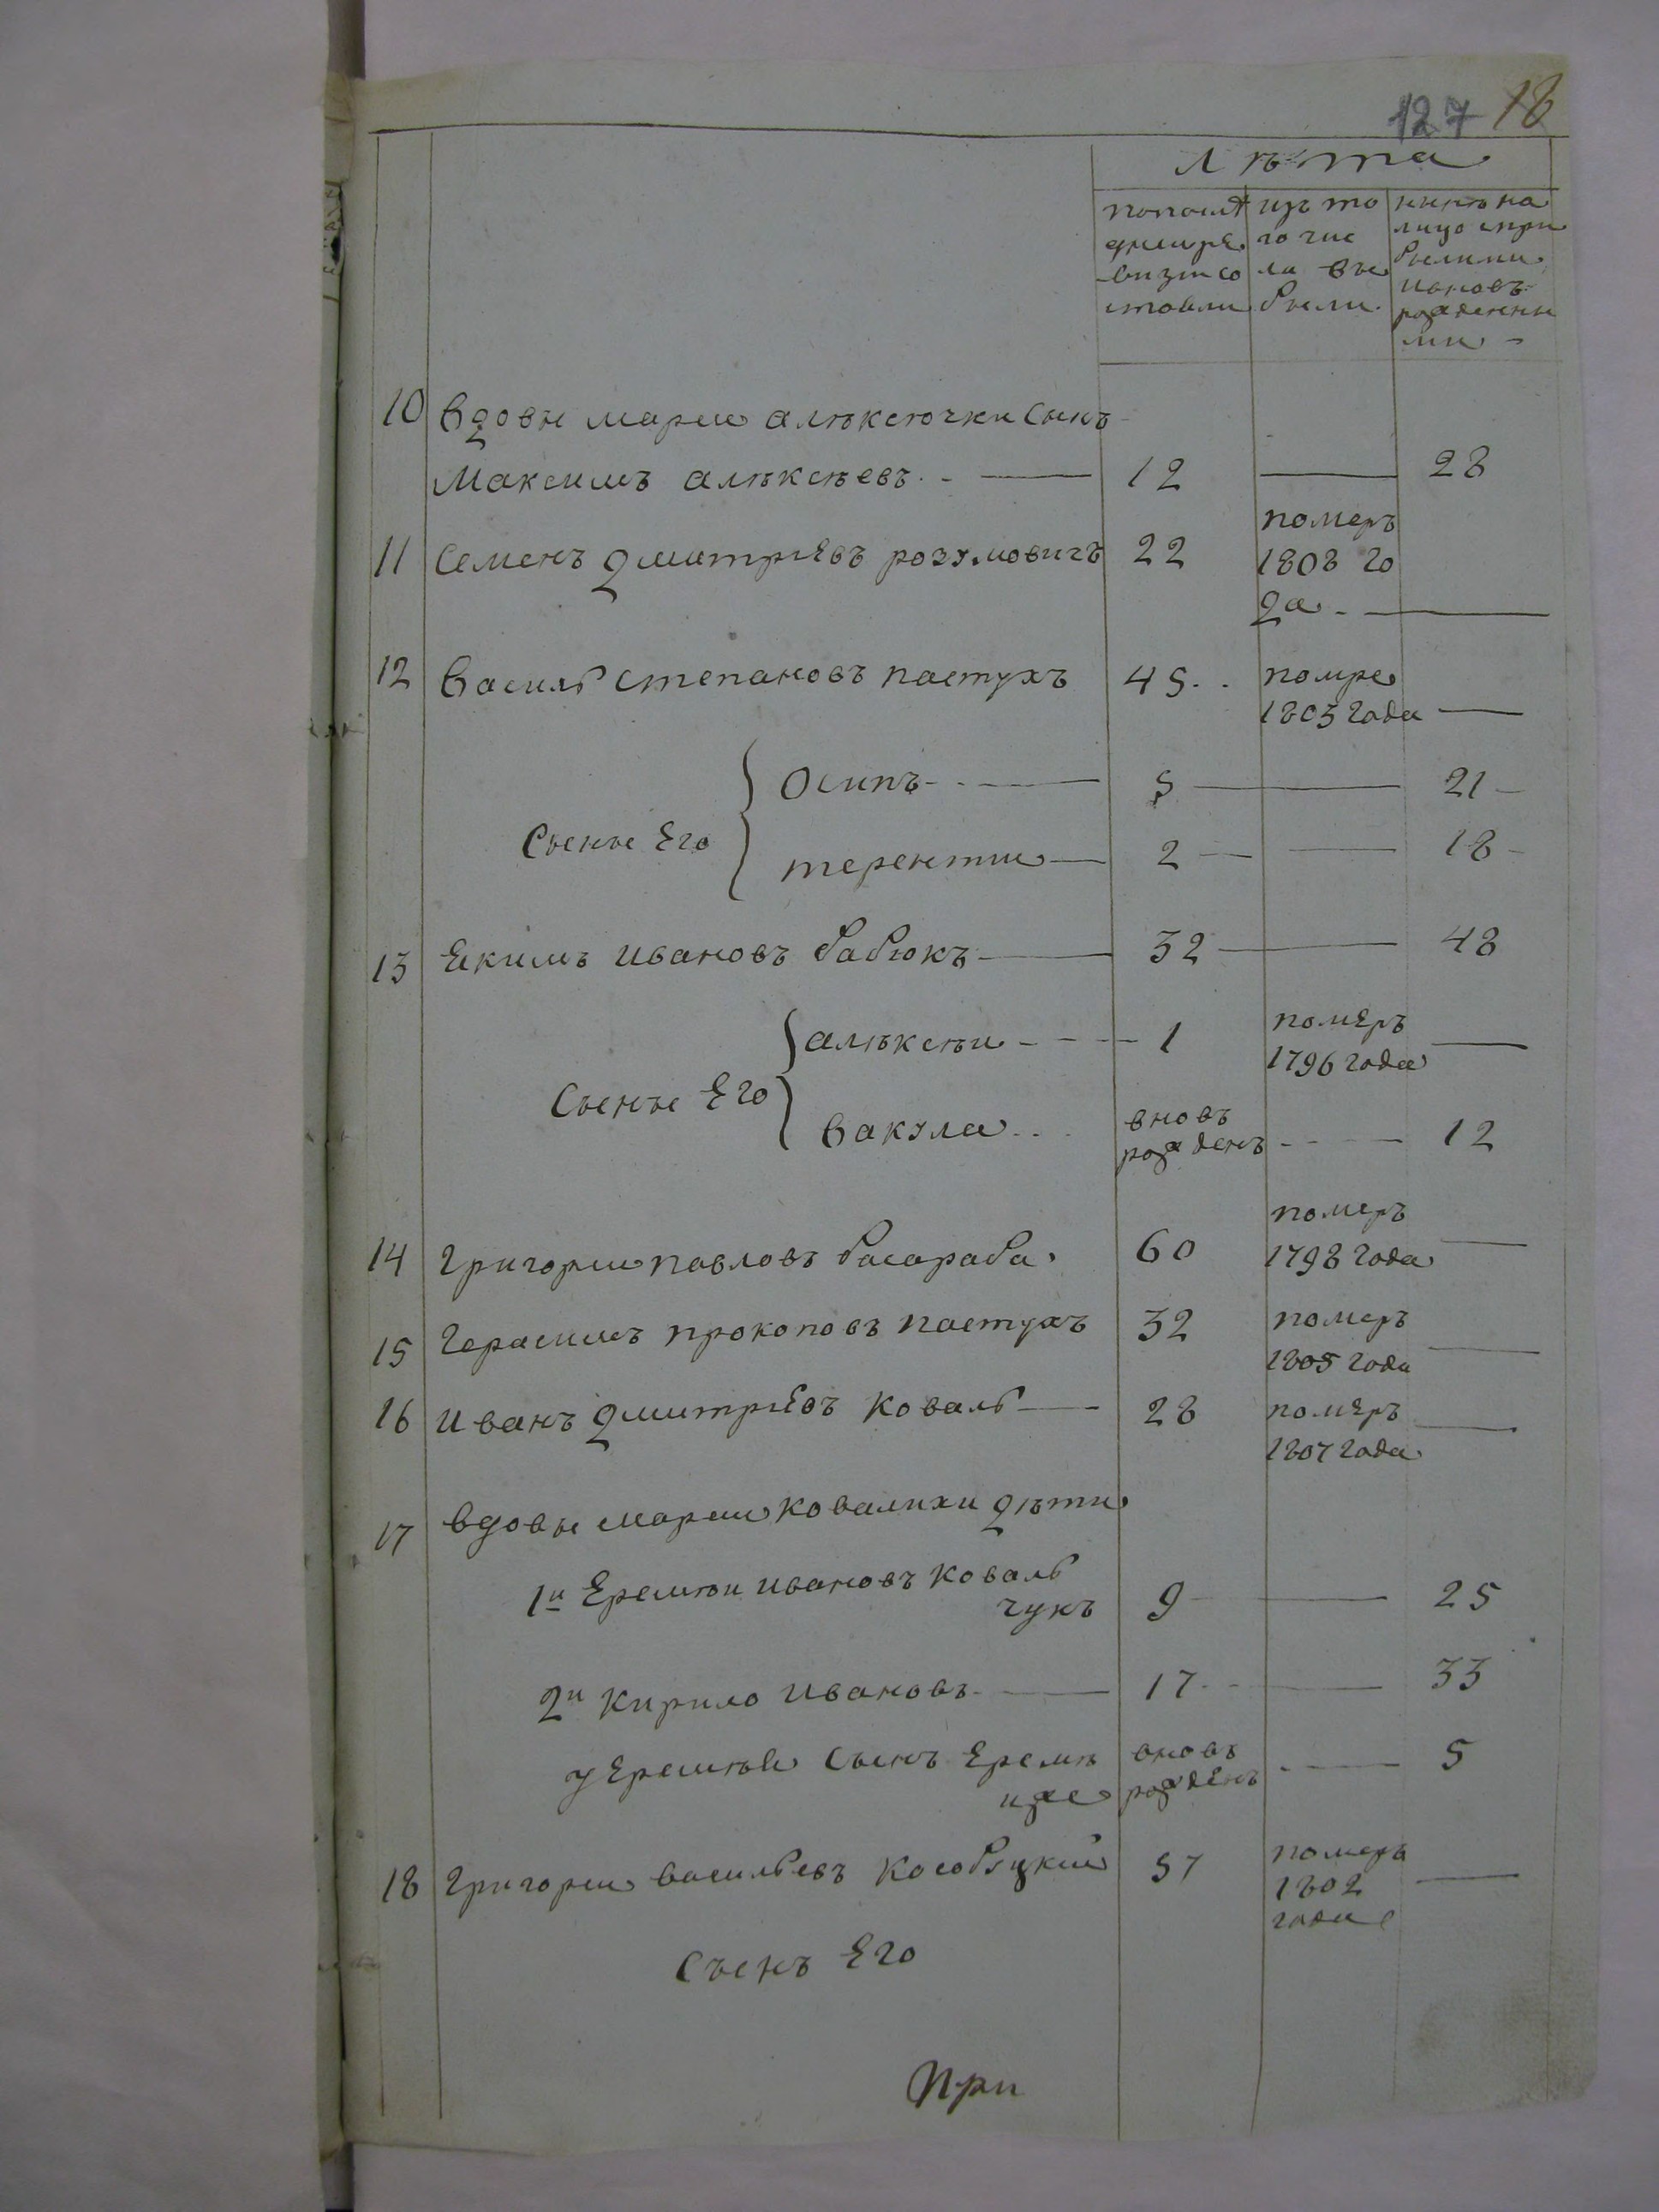 127 18
лѣта
попослѣ
дней ре
визїи со
стояли
изъ то
го чис
ла вы
были.
нынѣ на
лицо спри
былыми
иновъ
рожденны
ми -
10 вдовы марии алѣксючки сынъ
максимъ алѣксѣевъ 12 28
11 семенъ дмитрїевъ розумовичъ 22 померъ
1808 го
да
12 василь степановъ пастухъ 45 помре
1805 года
Осипъ 5 21
Сыны Его
терентии 2 18
13 Екимъ ивановъ бабюкъ 32 48
алѣксѣи 1 померъ
1796 года
Сыны Его
вакула вновь
рожденъ 12
14 григории павловъ басараба 60 померъ
1798 года
15 герасимъ прокоповъ пастухъ 32 померъ
1805 года
16 иванъ дмитрїевъ коваль 28 померъ
1807 года
17 вдовы марии ковалихи дѣти
1й Еремѣи ивановъ коваль
чукъ 9 25
2й кирило ивановъ 17 33
у Еремѣи сынъ Еремѣ
иже вновь
рожденъ 5
18 григории васильевъ кособуцкий 57 померъ
1802
года
Сынъ Его
при